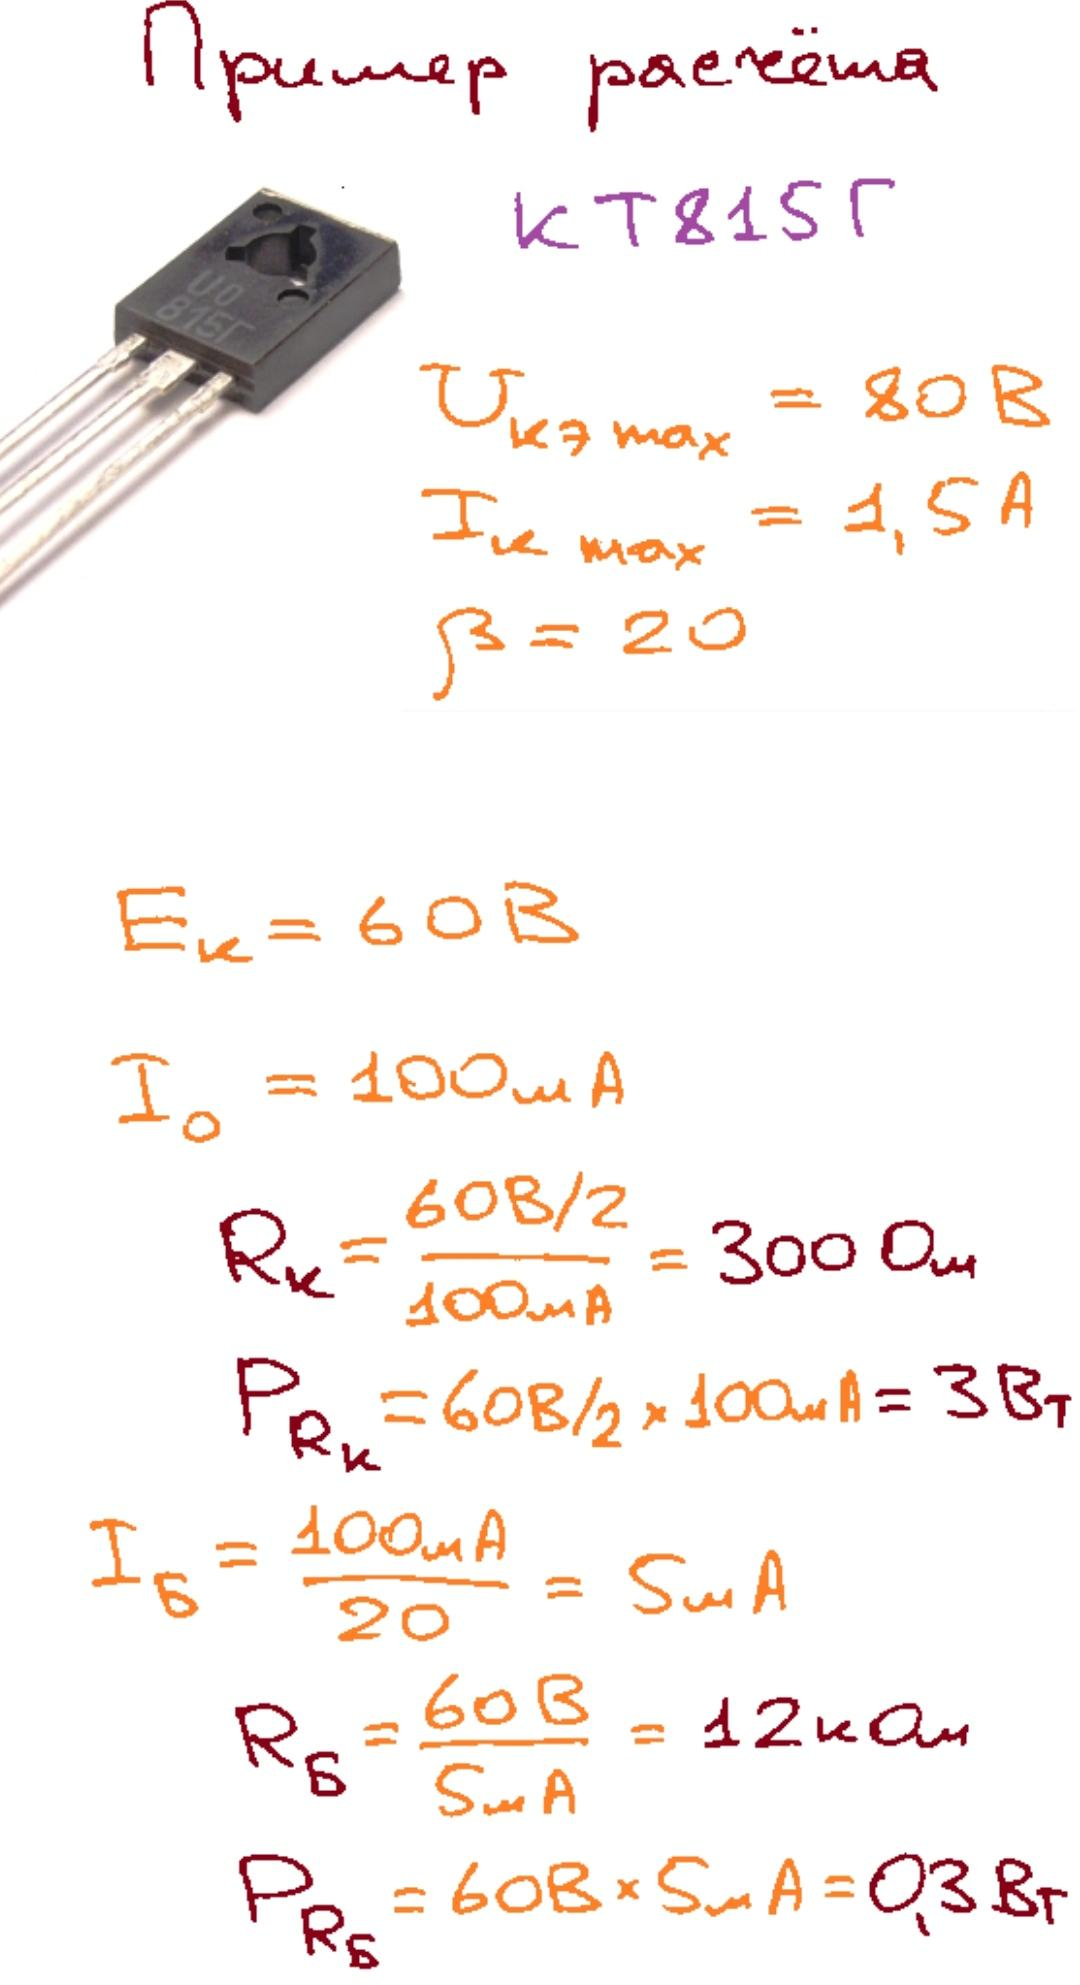 Пример расчёта
КТ815Г
U0
815Г
Uкэ max = 80В
Iк max = 1,5А
β = 20
Eк = 60В
I0 = 100мА
Rк = 60В/2 / 100мА = 300 Ом
PRк = 60В/2 × 100мА = 3Вт
Iб = 100мА / 20 = 5мА
Rб = 60В / 5мА = 12кОм
PRб = 60В × 5мА = 0,3Вт